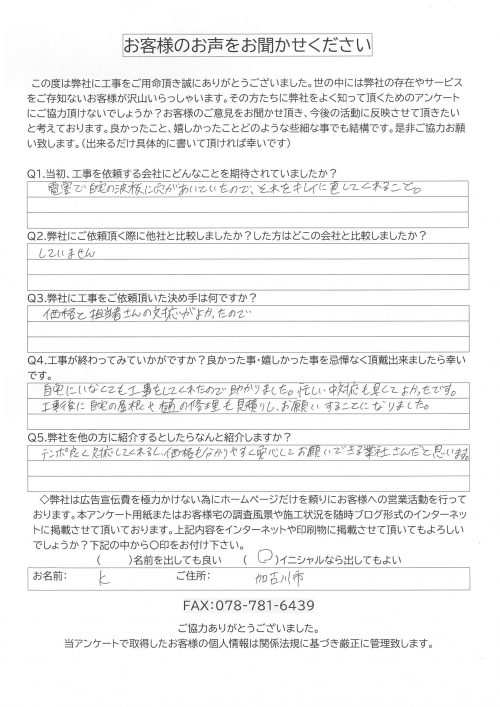 お客様のお声をお聞かせください
この度は弊社に工事をご用命頂き誠にありがとうございました。世の中には弊社の存在やサービス
をご存知ないお客様が沢山いらっしゃいます。その方たちに弊社をよく知って頂くためのアンケート
にご協力頂けないでしょうか？お客様のご意見をお聞かせ頂き、今後の活動に反映させて頂きたい
と考えております。良かったこと、嬉しかったことどのような些細な事でも結構です。是非ご協力お願
い致します。（出来るだけ具体的に書いて頂ければ幸いです）
Q1.当初、工事を依頼する会社にどんなことを期待されていましたか？
雹害で自宅の波板に穴があいていたので、それをキレイに直してくれること。
Q2.弊社にご依頼頂く際に他社と比較しましたか？した方はどこの会社と比較しましたか？
していません
Q3.弊社に工事をご依頼頂いた決め手は何ですか？
価格と担当者さんの対応がよかったので
Q4.工事が終わってみていかがですか？良かった事・嬉しかった事を忌憚なく頂戴出来ましたら幸い
です。
自宅にいなくても工事をしてくれたので助かりました。忙しい中対応も早くてよかったです。
工事後に自宅の屋根や樋の修理も見積りし、お願いすることになりました。
Q5.弊社を他の方に紹介するとしたらなんと紹介しますか？
テンポ良く対応してくれるし、価格も分かりやすく安心してお願いできる業社さんだと思います。
◇弊社は広告宣伝費を極力かけない為にホームページだけを頼りにお客様への営業活動を行って
おります。本アンケート用紙またはお客様宅の調査風景や施工状況を随時ブログ形式のインターネッ
トに掲載させて頂いております。上記内容をインターネットや印刷物に掲載させて頂いてもよろしい
でしょうか？下記の中から〇印をお付け下さい。
（　）名前を出しても良い　（〇）イニシャルなら出してもよい
お名前：　K　ご住所：　加古川市
FAX:078-781-6439
ご協力ありがとうございました。
当アンケートで取得したお客様の個人情報は関係法規に基づき厳正に管理致します。